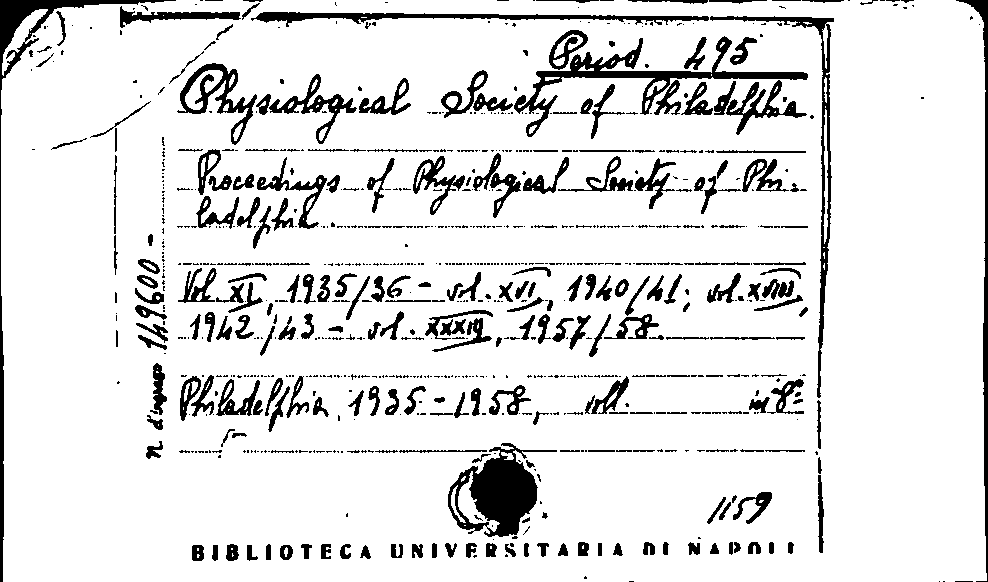 Period. 495
Physiological Society of Philadelphia.
Proceedings of Physiological Society of Phi-
ladelphia.
Vol. XI, 1935/36 - vol. XVI, 1940/41; vol. XVIII,
1942/43 - vol. XXXIII, 1957/58.
Philadelphia, 1935-1958, voll. in 8°
n. d'ingresso 149600 -
1159
BIBLIOTECA UNIVERSITARIA DI NAPOLI